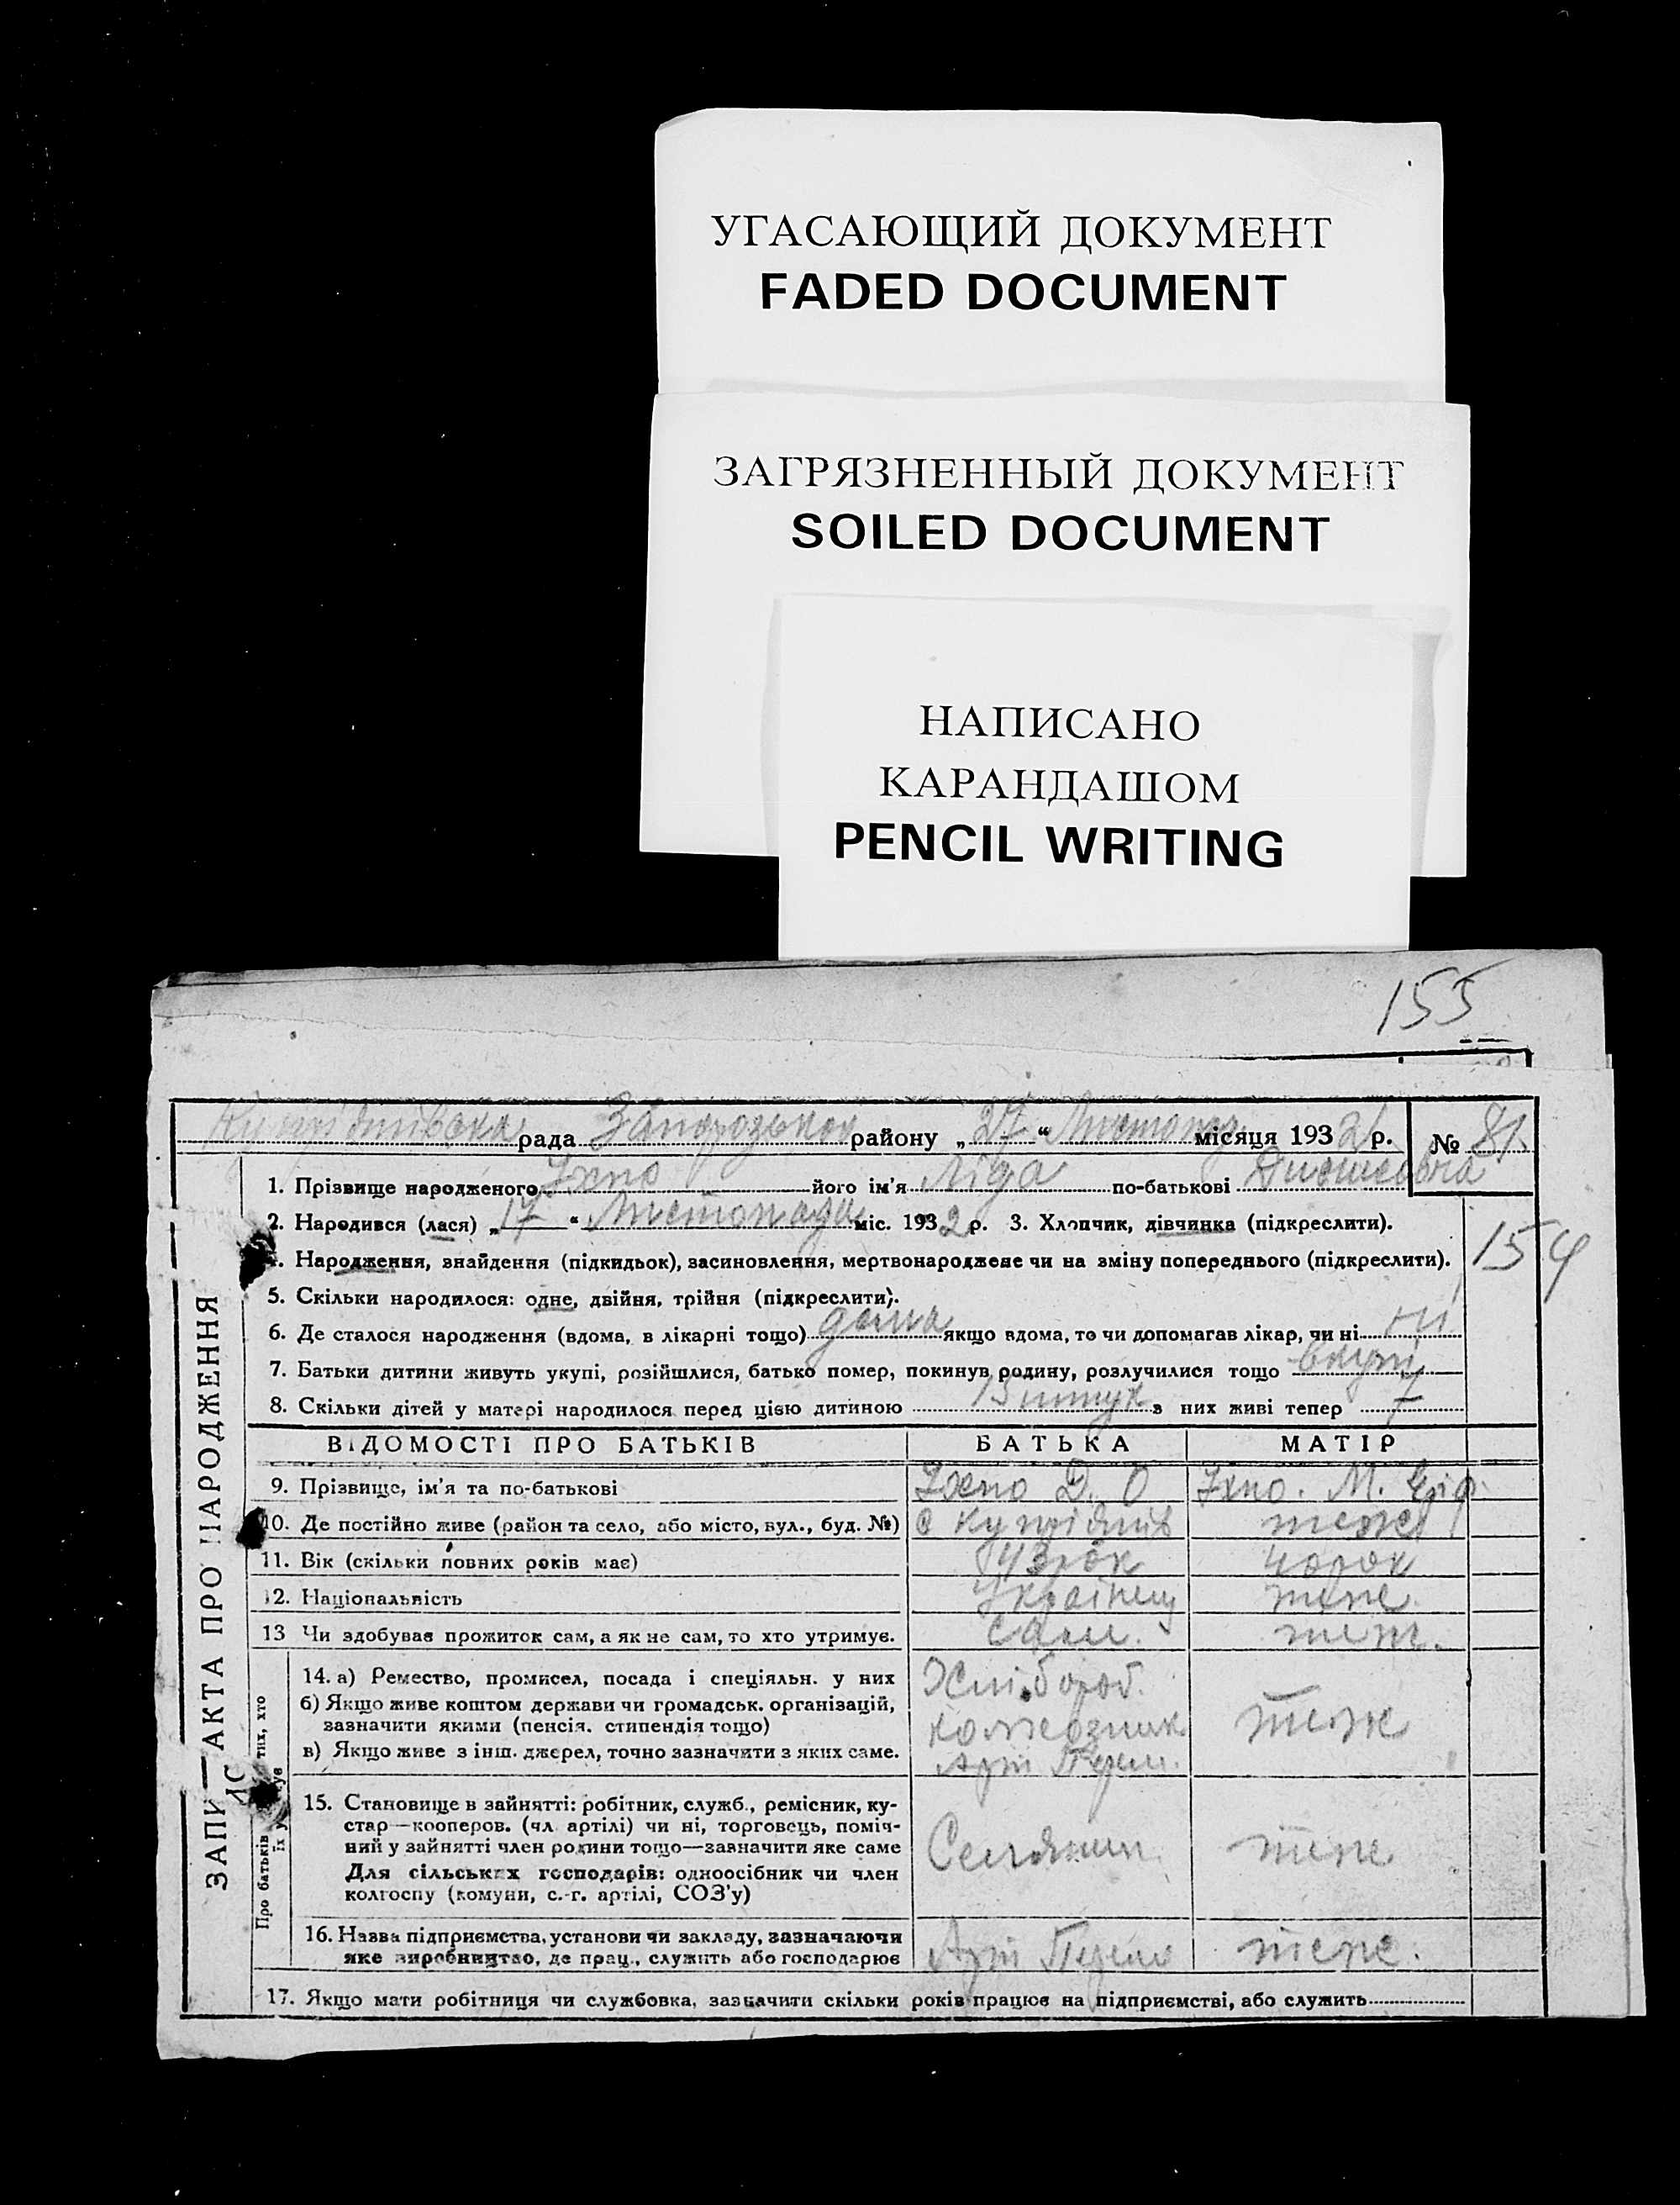 УГАСАЮЩИЙ ДОКУМЕНТ
FADED DOCUMENT
ЗАГРЯЗНЕННЫЙ ДОКУМЕНТ
SOILED DOCUMENT
НАПИСАНО
КАРАНДАШОМ
PENCIL WRITING
155
рада Запорозького району „27“ Листопада місяця 1932 р. № 81
1. Прізвище народженого Їхно його ім'я Ліда по-батькові
2. Народився (лася) „17“ Листопада міс. 1932 р. 3. Хлопчик, дівчинка (підкреслити).
154
Народження, знайдення (підкидьок), засиновлення, мертвонароджене чи на зміну попереднього (підкреслити).
5. Скільки народилося: одне, двійня, трійня (підкреслити).
6. Де сталося народження (вдома, в лікарні тощо) дома якщо вдома, то чи допомагав лікар, чи ні ні
7. Батьки дитини живуть укупі, розійшлися, батько помер, покинув родину, розлучилися тощо вкупі
8. Скільки дітей у матері народилося перед цією дитиною штук з них живі тепер 7
ВІДОМОСТІ ПРО БАТЬКІВ БАТЬКА МАТІР
9. Прізвище, ім'я та по-батькові Їхно Д. О Їхно. М.
10. Де постійно живе (район та село, або місто, вул., буд. №) теж
11. Вік (скільки повних років має) 43 рок 40 рок
12. Національність Українец теж
13 Чи здобував прожиток сам, а як не сам, то хто утримує. Сам. теж.
14. а) Ремество, промисел, посада і спеціяльн. у них Хлібороб.
б) Якщо живе коштом держави чи громадськ. організацій, колгозник теж
зазначити якими (пенсія. стипендія тощо)
в) Якщо живе з інш. джерел, точно зазначити з яких саме. Арт
15. Становище в зайнятті: робітник, служб., ремісник, ку-
стар—кооперов. (чл. артілі) чи ні, торговець, поміч-
ний у зайнятті член родини тощо—зазначити яке саме Селянин теж
Для сільських господарів: одноосібник чи член
колгоспу (комуни, с.-г. артілі, СОЗ'у)
16. Назва підприємства, установи чи закладу, зазначаючи
яке виробництво, де прац., служить або господарює Арт теж.
17. Якщо мати робітниця чи службовка, зазначити скільки років працює на підприємстві, або служить
ЗАПИС АКТА ПРО НАРОДЖЕННЯ
Про батьків тих, хто
їх